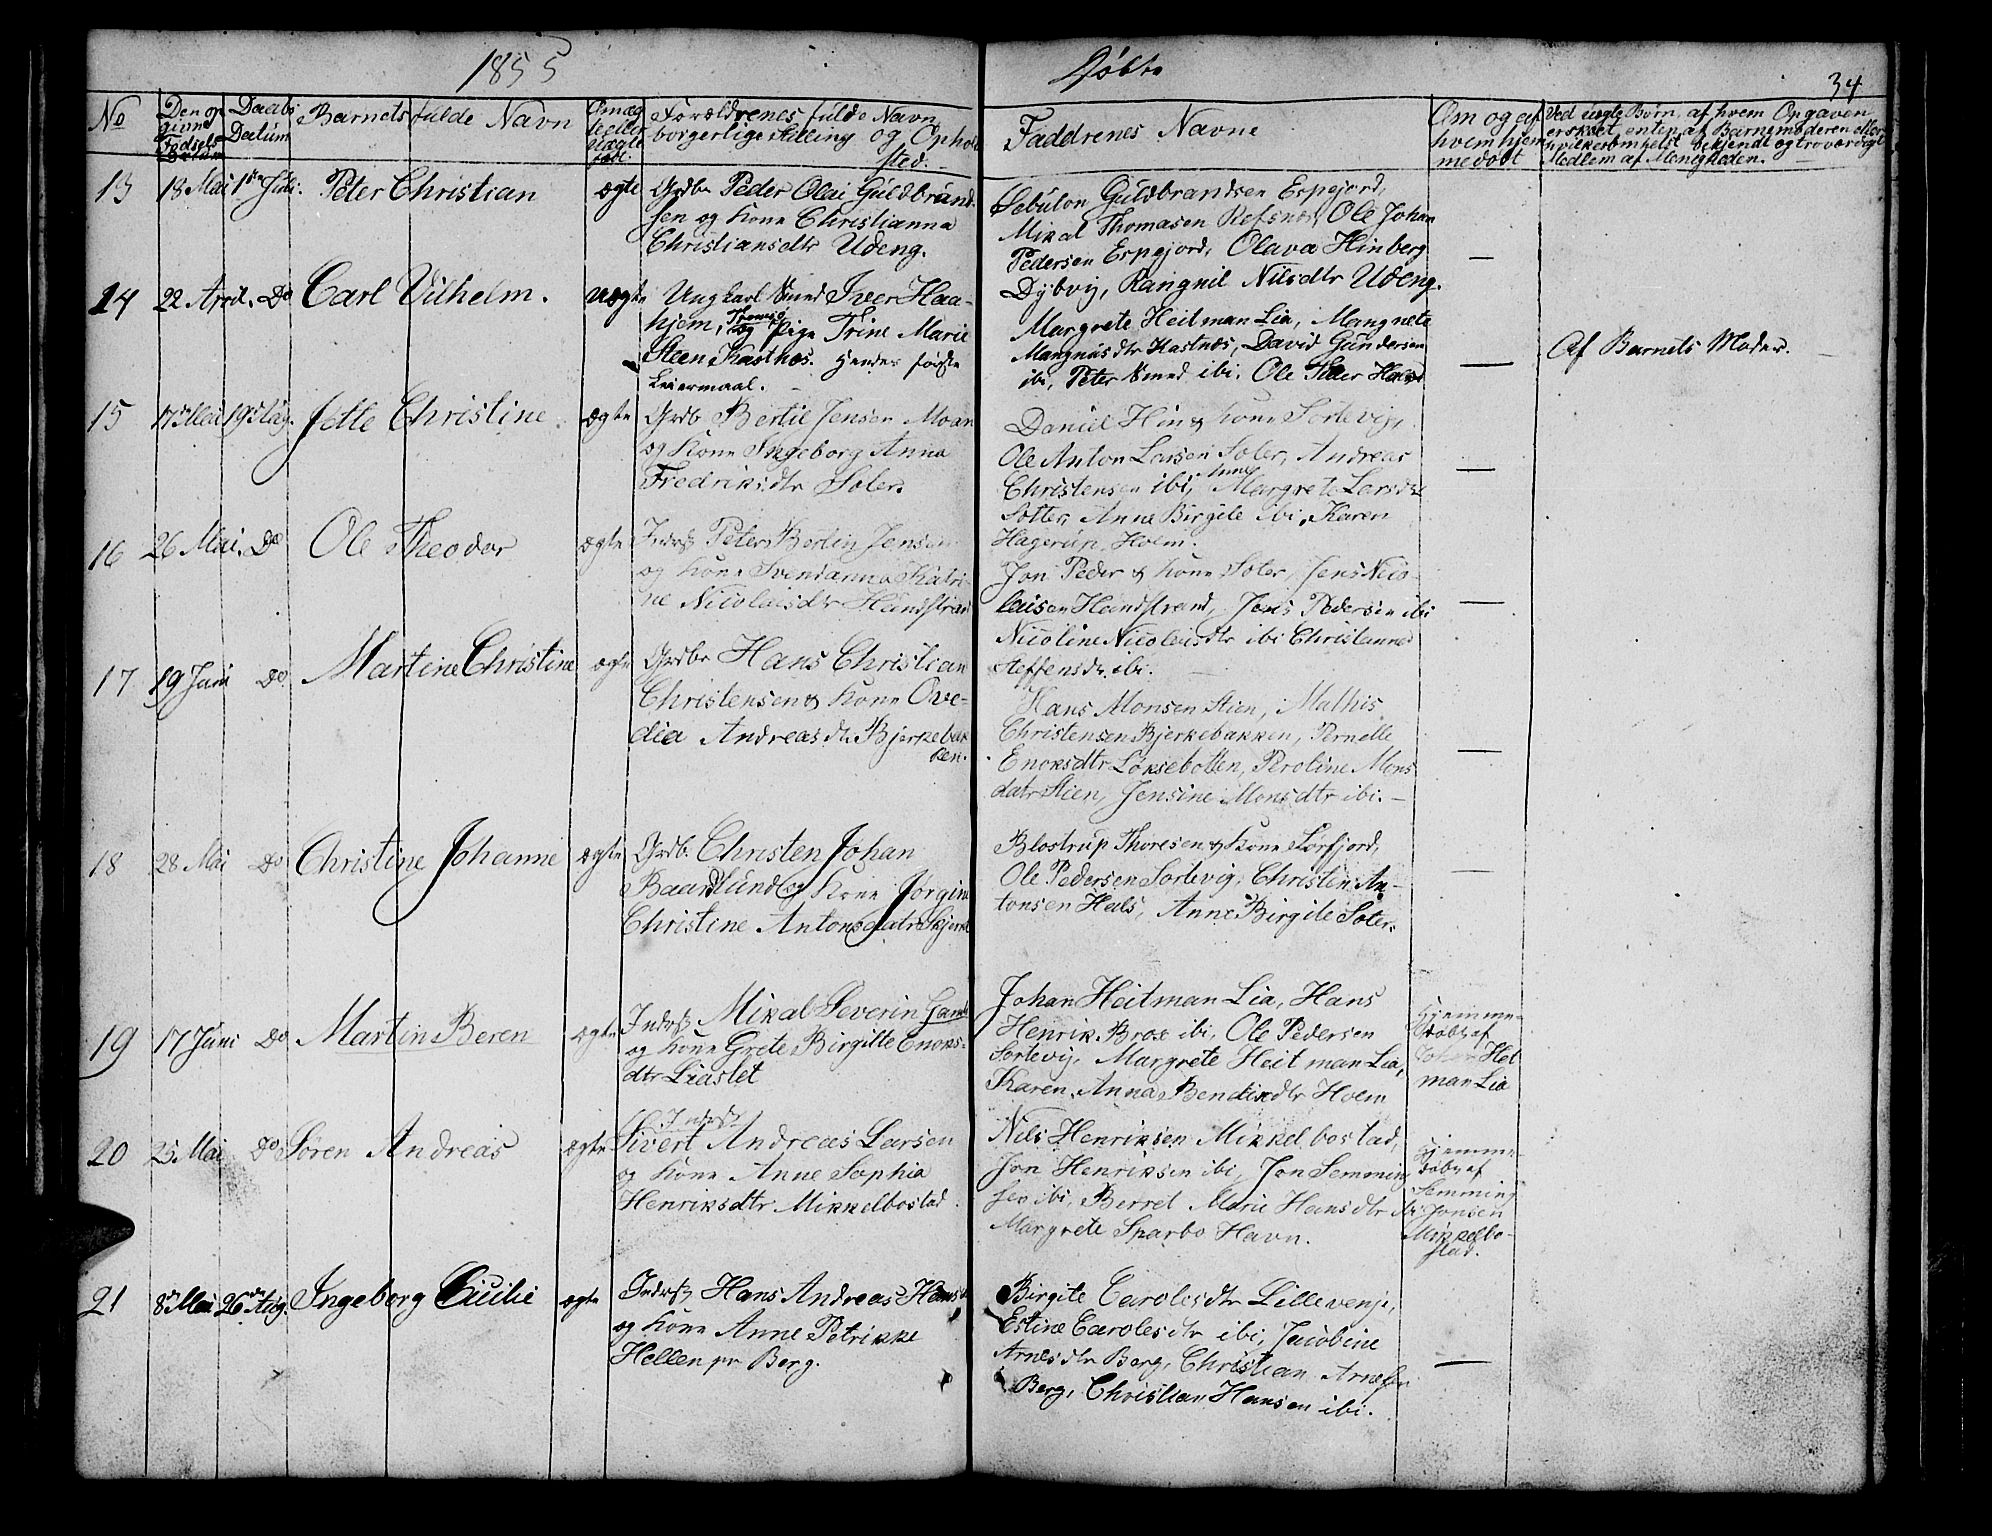 1855
Døbte
34
No
Den op
ginne
Fødsels
Datum
Daabs
Datum
Barnets fulde Navn
Om æg
te eller
uægte
født.
Forældrenes fulde Navn,
borgerlige Stilling og Ophold
sted.
Faddrenes Navne
Om og af
hvem hjem
medøbt
Ved uægte Børn, af hvem Opgaven
er skeet, enten af Barnemoderen eller
hvilkensomhelst bekjendt og troværdigt
Medlem af Menigheden.
13 18 Mai 1ste Juli. Peter Christian ægte
Grdbr Peder Olai Guldbrand-
sen og Kone Christianna
Christiansdtr Udeng.
Sebulon Guldbrandsen Espejord,
Mikal Thomasen Refsnes, Ole Johan
Pedersen Espejord, Olava Hinberg
Dybvig, Rangnil Nilsdtr Udeng.
—
14 22 April. Do Carl Vilhelm. uægte
Ungkarl Smed Iver Haa-
hjem, Tromsø og Pige Trine Marie
Steen Kastnes. Hendes første
Leiermaal.
Margrete Heitman Lia, Mangnete
Mangnusdtr Kastnes, David Gundersen
ibi, Peter Smed ibi. Ole Peder
—
Af Barnets Moder.
15 17 Mai 19 Aug. Jette Christine. ægte
Grdb. Bertil Jensen Moan
og Kone Ingeborg Anna
Fredriksdtr Soler.
Daniel Hin & Kone Sortevig,
Ole Anton Larsen Soler, Andreas
Christensen ibi, Anne Margrete Larsdtr
Soller, Anne Birgite ibi, Karen
Hagerup, Hoem.
—
16 26 Mai. Do Ole Theodor ægte
Indrst Peter Bertin Jensen
og Kone Svenianna Katri-
ne Nicolaisdtr Handstrand
Jon Peder & Kone Soter, Jens Nico-
laisen Handstrand, Jens Pedersen ibi
Nicoline Nicolaisdtr ibi Christianne
Steffensdtr ibi.
—
17 19 Juni Do Martine Christine ægte
Grdbr Hans Christian
Christensen & Kone Ove-
dia Andreasdtr Bjerkebak
ken.
Hans Monsen Stien, Mathis
Christensen Bjerkebakken, Pernelle
Enoksdtr Løksebotten, Peroline Mons
datr Stien, Jensine Monsdtr ibi.—
—
18 28 Mai Do Christine Johanne ægte
Grdb. Christen Johan
Baardlund og Kone Jørgine
Christine Antonsdatr Skjerst
Blostrup Thoresen & Kone Sørfjord,
Ole Pedersen Sortevig, Christen An-
tonsen Hals, Anne Birgite Soter.
—
19 17 Juni Do Martin Beren ægte
Indrst Mikal Severin Gam
og Kone Grete Birgitte Enoks-
dtr Liaslet
Johan Heitman Lia, Hans
Henrik Brox ibi, Ole Pedersen
Sortevig, Margrete Heitman Lia,
Karen Anna Bendixdtr Hoem
Hjemme-
døbt af
Johan Heit
man Lia
20 25 Mai Do Søren Andreas ægte
Indrst
Sivert Andreas Larsen
og Kone Anne Sophia
Henriksdtr. Mikkelbostad.
Nils Henriksen Mikkelbostad,
Jon Henriksen ibi, Jon Semming
sen ibi, Berret Marie Hansdtr ibi
Margrete Sparbo Havn.
Hjemme-
døbt af
Semming
Jonsen
Mikkelbo-
stad.
21 8 Mai 26de Aug. Ingeborg Cicilie ægte
Indrst Hans Andreas Hans
og Kone Anne Petrikke
Hellen pr Berg.
Birgite Carolesdtr Lillevenje,
Estine Carolesdtr ibi, Jacobine
Arnesdtr Berg, Christian Arnesen
Berg, Christian Hansen ibi.
—